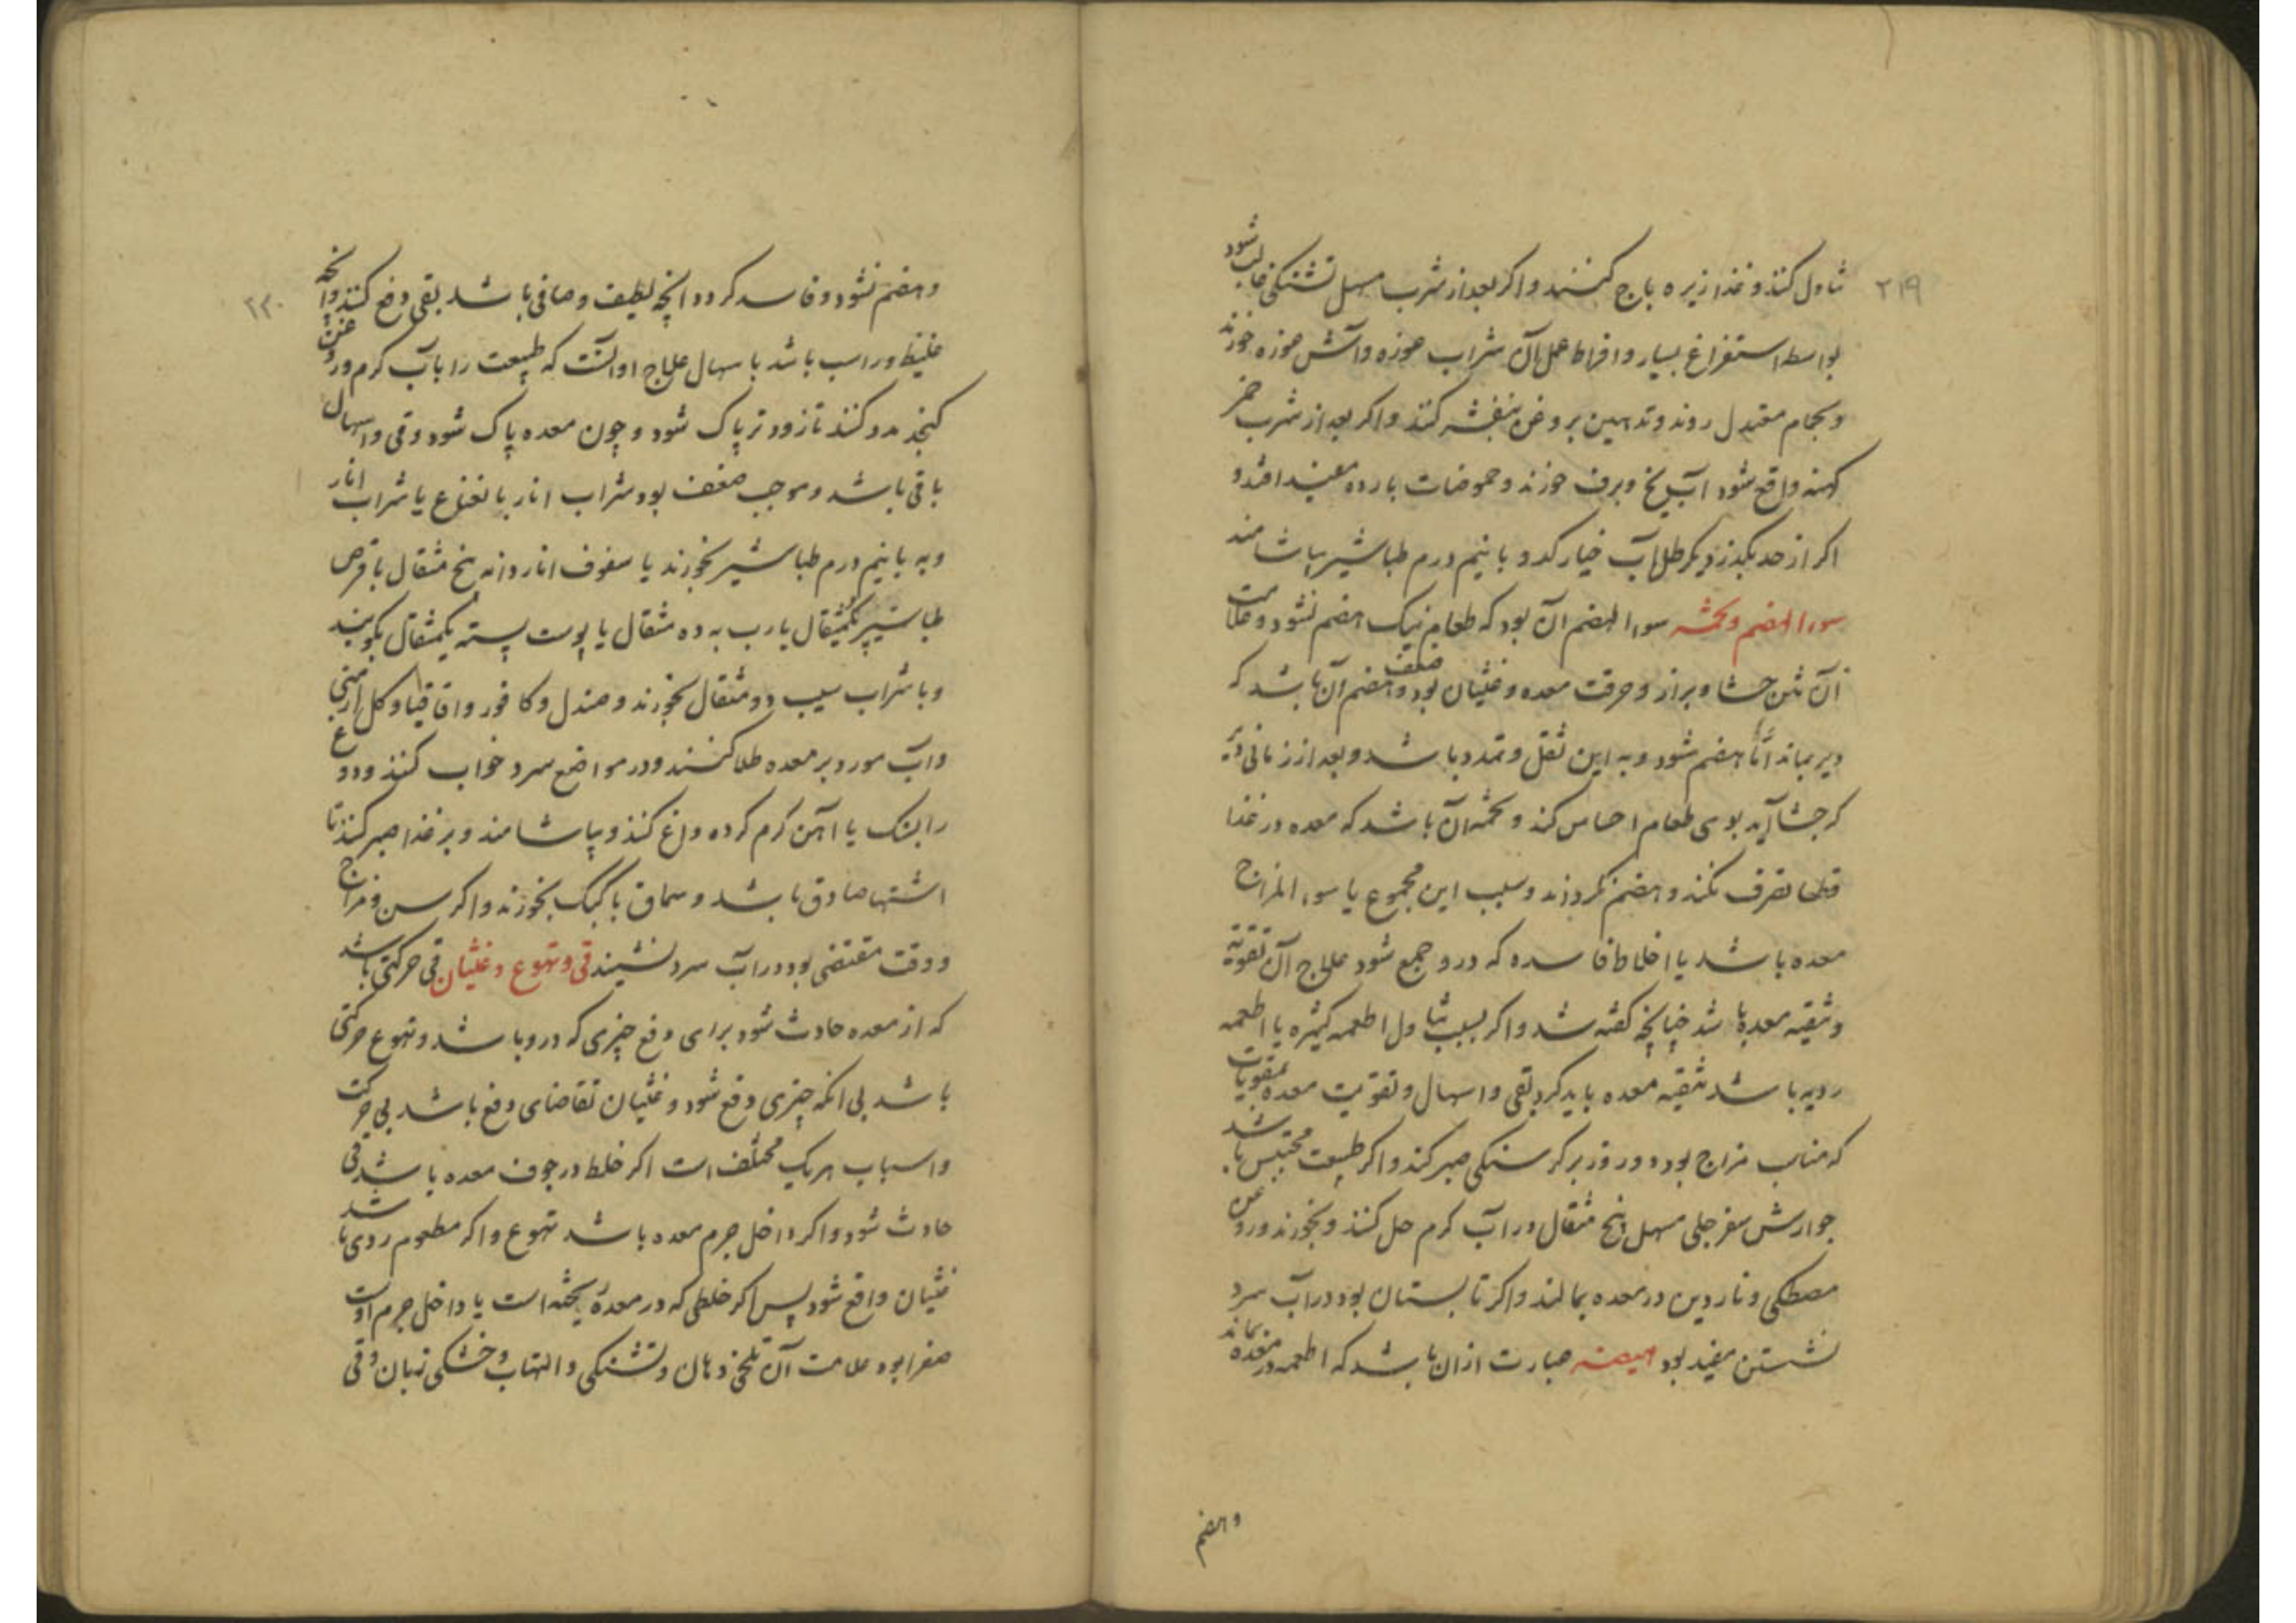 ۲۱۹
تناول کنند و غذا زیره باج کنند و اکر بعد از شرب مسهل تشنکی غالب شود
بواسطه استفراغ بسیار و افراط عمل آن شراب غوره و آش غوره خورند
و بحمام معتدل روند و تدهین بروغن بنفشه کنند و اکر بعد از شرب خمر
کهنه واقع شود آب یخ و برف خورند و حموضات بارده مفید افتد و
اکر از حد بکذرد یکرطل آب خیار کدو با نیم درم طباشیر بیاشامند
سوء الهضم و تخمه سوء الهضم آن بود که طعام نیک هضم نشود و علامت
آن نتن جشا و براز و حرقت معده و غثیان بود و ضعف هضم آن باشد که
دیر بماند اما هضم شود و به این ثقل و تمدد باشد و بعد از زمانی دیر
کر جشا آید بوی طعام احساس کند و تخمه آن باشد که معده در غذا
قطعا تصرف نکند و هضم نکرداند و سبب این مجموع یا سوء المزاج
معده باشد یا اخلاط فاسده که درو جمع شود علاج آن تقویة
و تنقیه معده باشد چنانچه کفته شد و اکر بسبب تناول اطعمه کثیره یا اطعمه
ردیه باشد تنقیه معده باید کرد بقی و اسهال و تقویت معده بمقویات
که مناسب مزاج بود و دو روز بر کرسنکی صبر کند و اکر طبیعت محتبس باشد
جوارش سفرجلی مسهل پنج مثقال در آب کرم حل کنند و بخورند و روغن
مصطکی و ناردین در معده بمالند و اکر تابستان بود در آب سرد
نشستن مفید بود هیضه عبارت از آن باشد که اطعمه در معده بماند
و هضم
۲۲۰
و هضم نشود و فاسد کردد انچه لطیف و صافی باشد بقی دفع کنند و انچه
غلیظ و راسب باشد با سهال علاج او آنست که طبیعت را بآب کرم و روغن
کنجد مدد کنند تا زودتر پاک شود و چون معده پاک شود و قی و اسهال
باقی باشد و موجب ضعف بود شراب انار با نعناع یا شراب انار
و به با نیم درم طباشیر بخورند یا سفوف انار دانه پنج مثقال با قرص
طباشیر یکمثقال یا رب به ده مثقال یا پوست پسته یکمثقال بکوبند
و با شراب سیب دو مثقال بخورند و صندل و کافور و اقاقیا و کل ارمنی
و آب مورد بر معده طلا کنند و در مواضع سرد خواب کنند و دوغ
را بسنک یا آهن کرم کرده داغ کنند و بیاشامند و بر غذا صبر کنند تا
اشتها صادق باشد و سماق با کبک بخورند و اکر سن و مزاج
و وقت مقتضی بود در آب سرد نشینند قی و تهوع و غثیان قی حرکتی باشد
که از معده حادث شود برای دفع چیزی که درو باشد و تهوع حرکتی
باشد بی انکه چیزی دفع شود و غثیان تقاضای دفع باشد بی حرکت
و اسباب هر یک مختلف است اکر خلط در جوف معده باشد قی
حادث شود و اکر داخل جرم معده باشد تهوع و اکر مطعوم ردی باشد
غثیان واقع شود پس اکر خلطی که در معده ریخته است یا داخل جرم اوست
صفرا بود علامت آن تلخی دهان و تشنکی و التهاب و خشکی زبان و قی